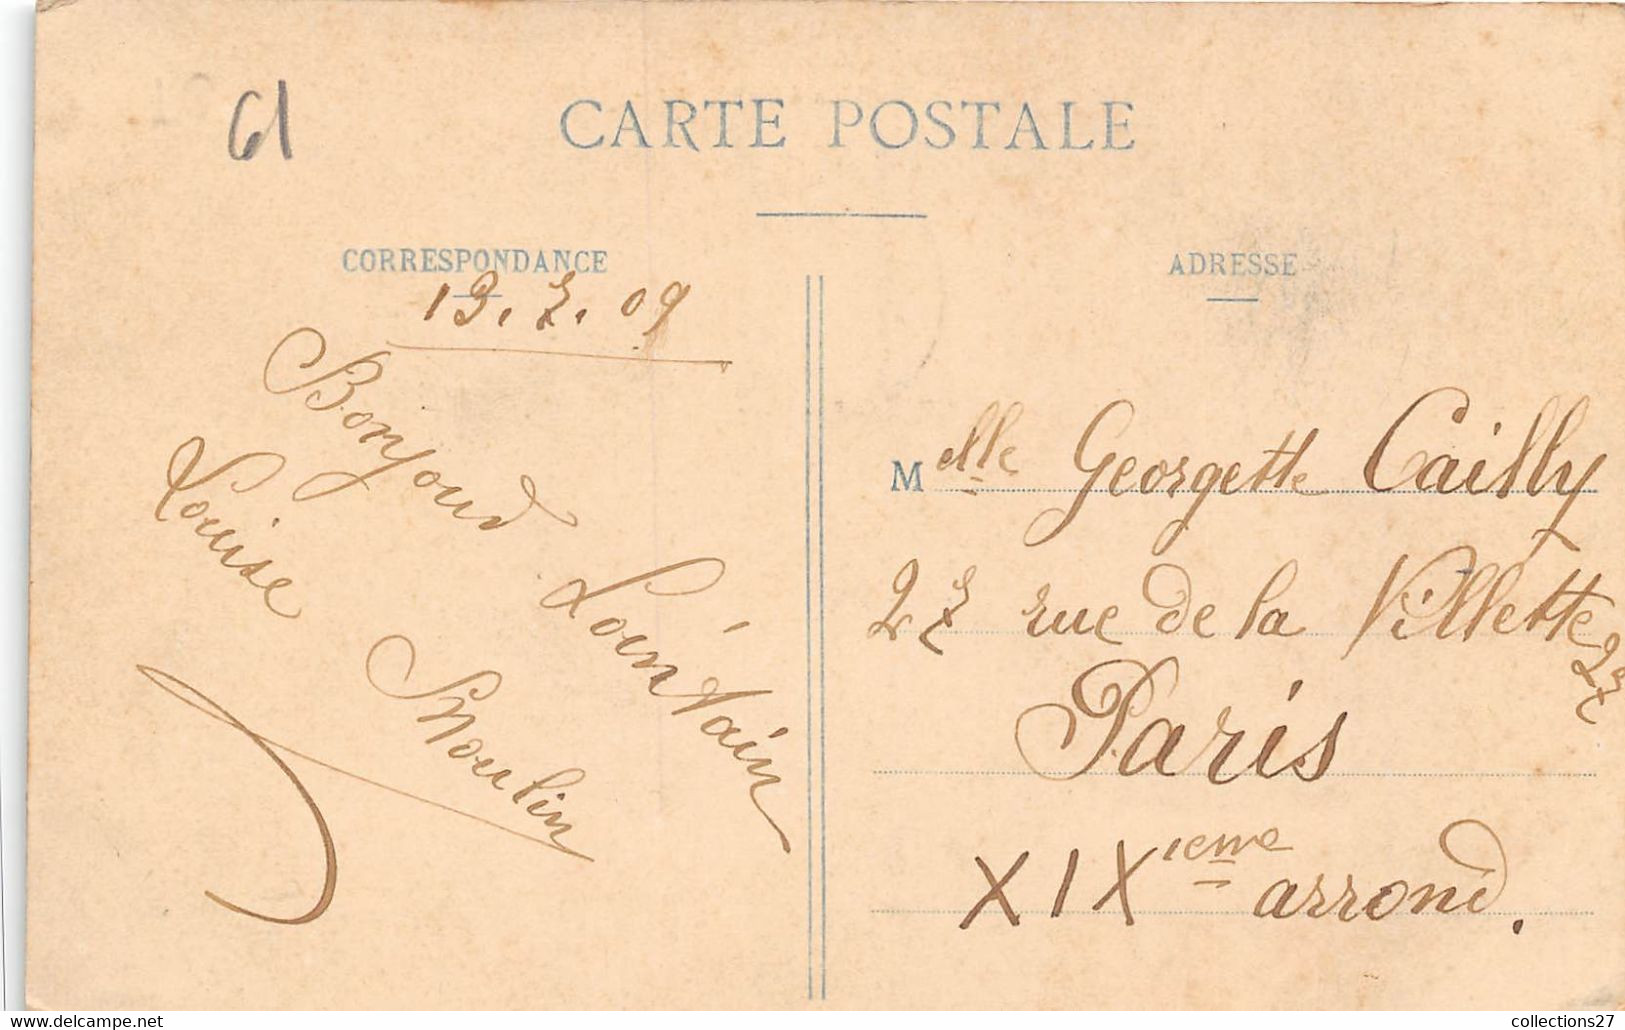 61
CARTE POSTALE
CORRESPONDANCE
13.7.09
Bonjour Lointain
Louise Moulin
ADRESSE
Melle Georgette Cailly
27 rue de la Villette 27
Paris
XIXieme arrond.
collections27